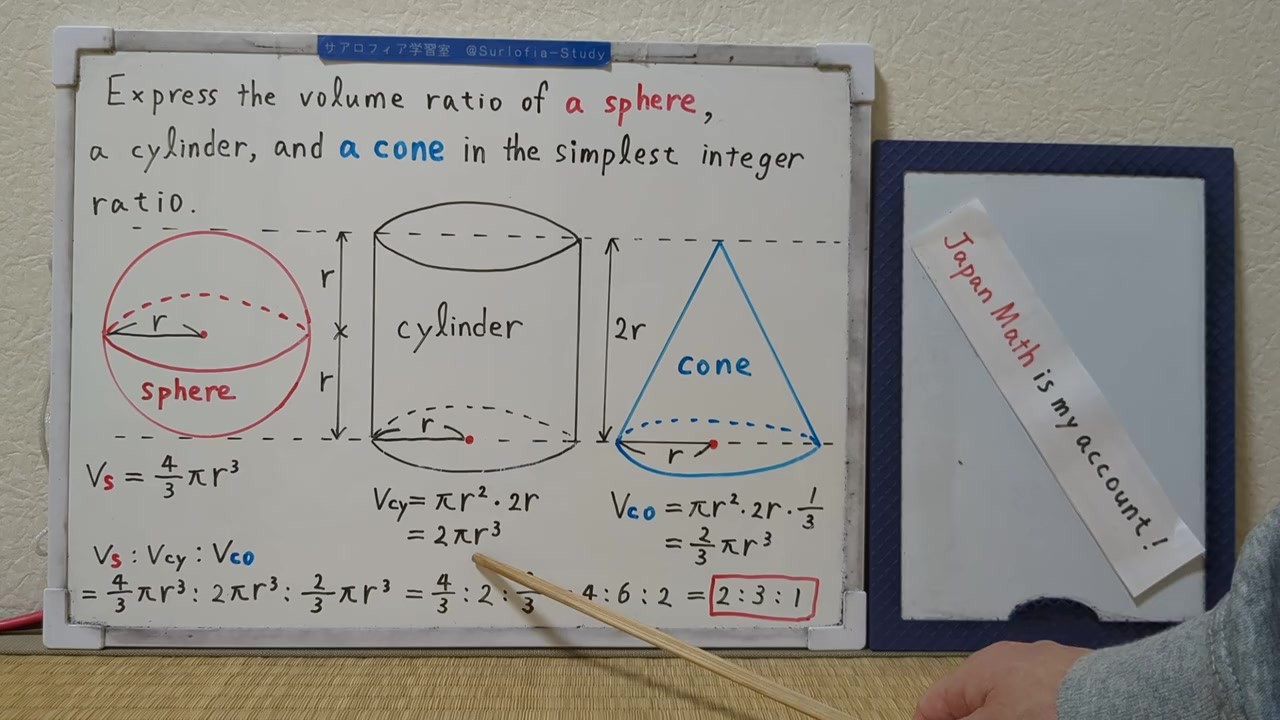 サアロフィア学習室 @Surlofia-Study
Express the volume ratio of a sphere,
a cylinder, and a cone in the simplest integer
ratio.
r
sphere
r
r
cylinder
r
2r
cone
r
Vs = 4/3 πr³
Vcy = πr²・2r
= 2πr³
Vco = πr²・2r・1/3
= 2/3 πr³
Vs : Vcy : Vco
= 4/3 πr³ : 2πr³ : 2/3 πr³ = 4/3 : 2 : /3 4 : 6 : 2 = 2 : 3 : 1
Japan Math is my account!